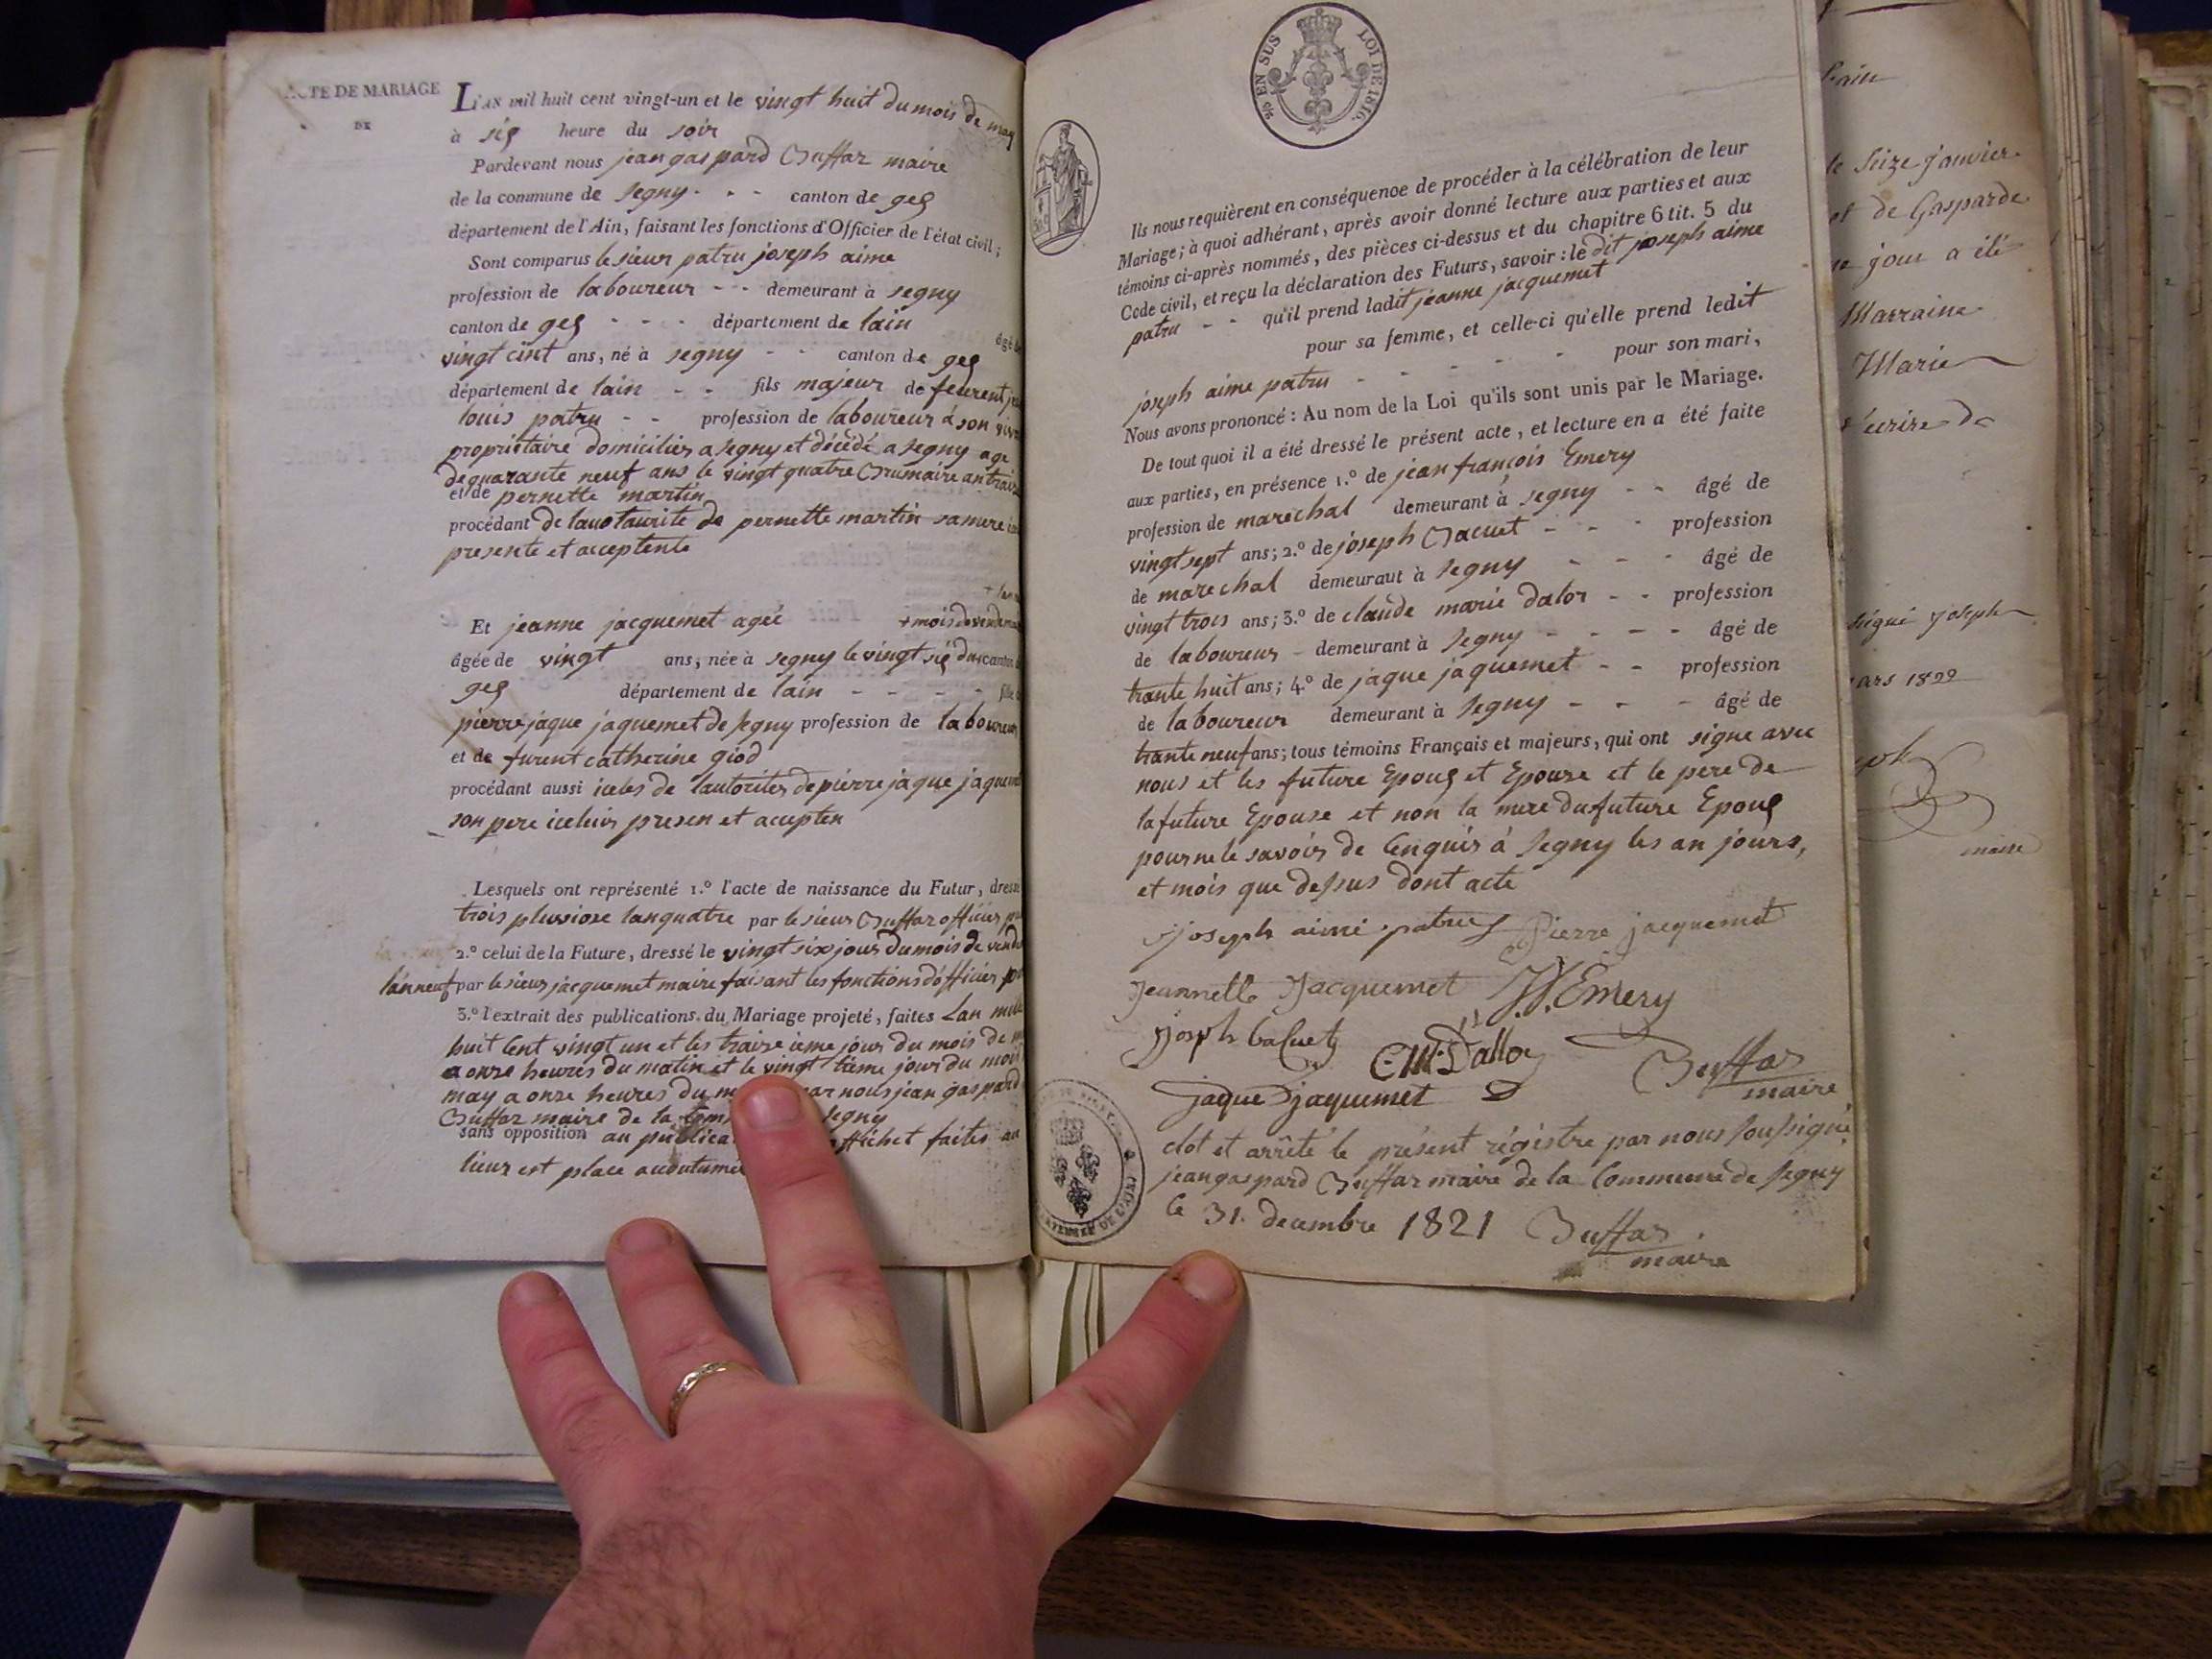 ACTE DE MARIAGE
DE
L'AN mil huit cent vingt-un et le vingt huit du mois de may
à six heure du soir
Pardevant nous jean gaspard Buffaz maire
de la commune de segny - - - canton de gex
département de l'Ain, faisant les fonctions d'Officier de l'état civil;
Sont comparus le sieur patru joseph aime
profession de laboureur - - - demeurant à segny
canton de gex - - - département de lain
âgé de
vingt cint ans, né à segny - - canton de gex
département de lain - - fils majeur de feurent
louis patru - - profession de laboureur á son vivant
propriétaire domicilier a segny et décédé a segny age
de quarante neuf ans le vingt quatre Brumaire an
et de pernette martin
procédant de lauotaurite de pernette martin sa mere
presente et acceptente
Et jeanne jacquemet ageé + mois de
âgée de vingt ans, née à segny le vingt six du canton
gex département de lain - - - - fille
pierre jaque jaquemet de segny profession de laboureur
et de furent catherine giod
procédant aussi iceles de lautorites de pierre jaque jaquemet
son pere iceluis presen et acepten
Lesquels ont représenté 1.° l'acte de naissance du Futur, dressé
trois pluviose lanquatre par le sieur Buffaz officier
2.° celui de la Future, dressé le vingt six jour du mois de
lanneuf par le sieur jacquemet maire faisant les fonctions dofficier
3.° l'extrait des publications du Mariage projeté, faites Lan mille
huit Cent vingt un et les traize ieme jour du mois de
a onze heures du matin et le vingt tieme jour du mois
may a onze heures du par nous jean gaspard
Buffaz maire de la segny
sans opposition au affichet faites au
lieux est place
% EN SUS LOI DE 1816.
Ils nous requièrent en conséquence de procéder à la célébration de leur
Mariage; à quoi adhérant, après avoir donné lecture aux parties et aux
témoins ci-après nommés, des pièces ci-dessus et du chapitre 6 tit. 5 du
Code civil, et reçu la déclaration des Futurs, savoir: le dit joseph aime
patru - - qu'il prend ladit jeanne jacquemet
pour sa femme, et celle-ci qu'elle prend ledit
joseph aime patru - - - - - pour son mari,
Nous avons prononcé: Au nom de la Loi qu'ils sont unis par le Mariage.
De tout quoi il a été dressé le présent acte, et lecture en a été faite
aux parties, en présence 1.° de jean françois Emery
profession de marechal demeurant à segny - - âgé de
vingt sept ans; 2.° de joseph Bacuet - - - profession
de marechal demeuraut à segny - - - âgé de
vingt trois ans; 3.° de claude marie dalor - - profession
de laboureur - demeurant à segny - - - - âgé de
trante huit ans; 4.° de jaque jaquemet - - profession
de laboureur demeurant à segny - - - âgé de
trante neuf ans; tous témoins Français et majeurs, qui ont signe avec
nous et les future Epoux et Epouse et le pere de
la future Epouse et non la mere du future Epoux
pour ne le savoir de Cenquis à segny les an jours,
et mois que dessus dont acte
joseph aimé patru Pierre jacquemet
Jeannette Jacquemet J. f. Emery
joseph baCuet CM. Dalloz
Buffaz
maire
jaque jaquemet
clot et arrêté le présent régistre par nous soussigné
jean gaspard Buffaz maire de la Commune de segny
le 31. decembre 1821 Buffaz
maire
le seize janvier
et de Gasparde
jour a été
Marraine
Marie
signé Joseph
1822
maire